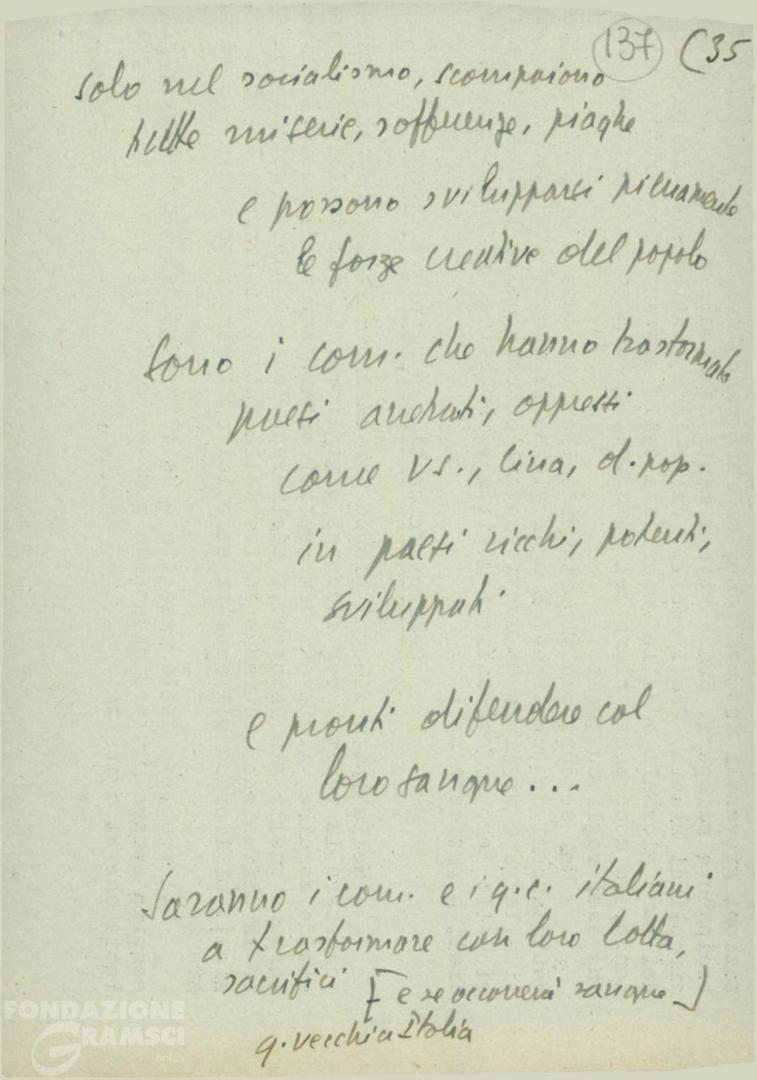 137 (35
solo nel socialismo, scompaiono
tutte miserie, sofferenze, piaghe
e possono svilupparsi pienamente
le forze creative del popolo
Sono i com. che hanno trasformato
paesi arretrati, oppressi
come US., Cina, d. pop.
in paesi ricchi, potenti,
sviluppati
e pronti difendere col
loro sangue...
Saranno i com. e i g.c. italiani
a trasformare con loro lotta,
sacrifici [e se occorrerà sangue]
q. vecchia Italia
FONDAZIONE
GRAMSCI
onlus